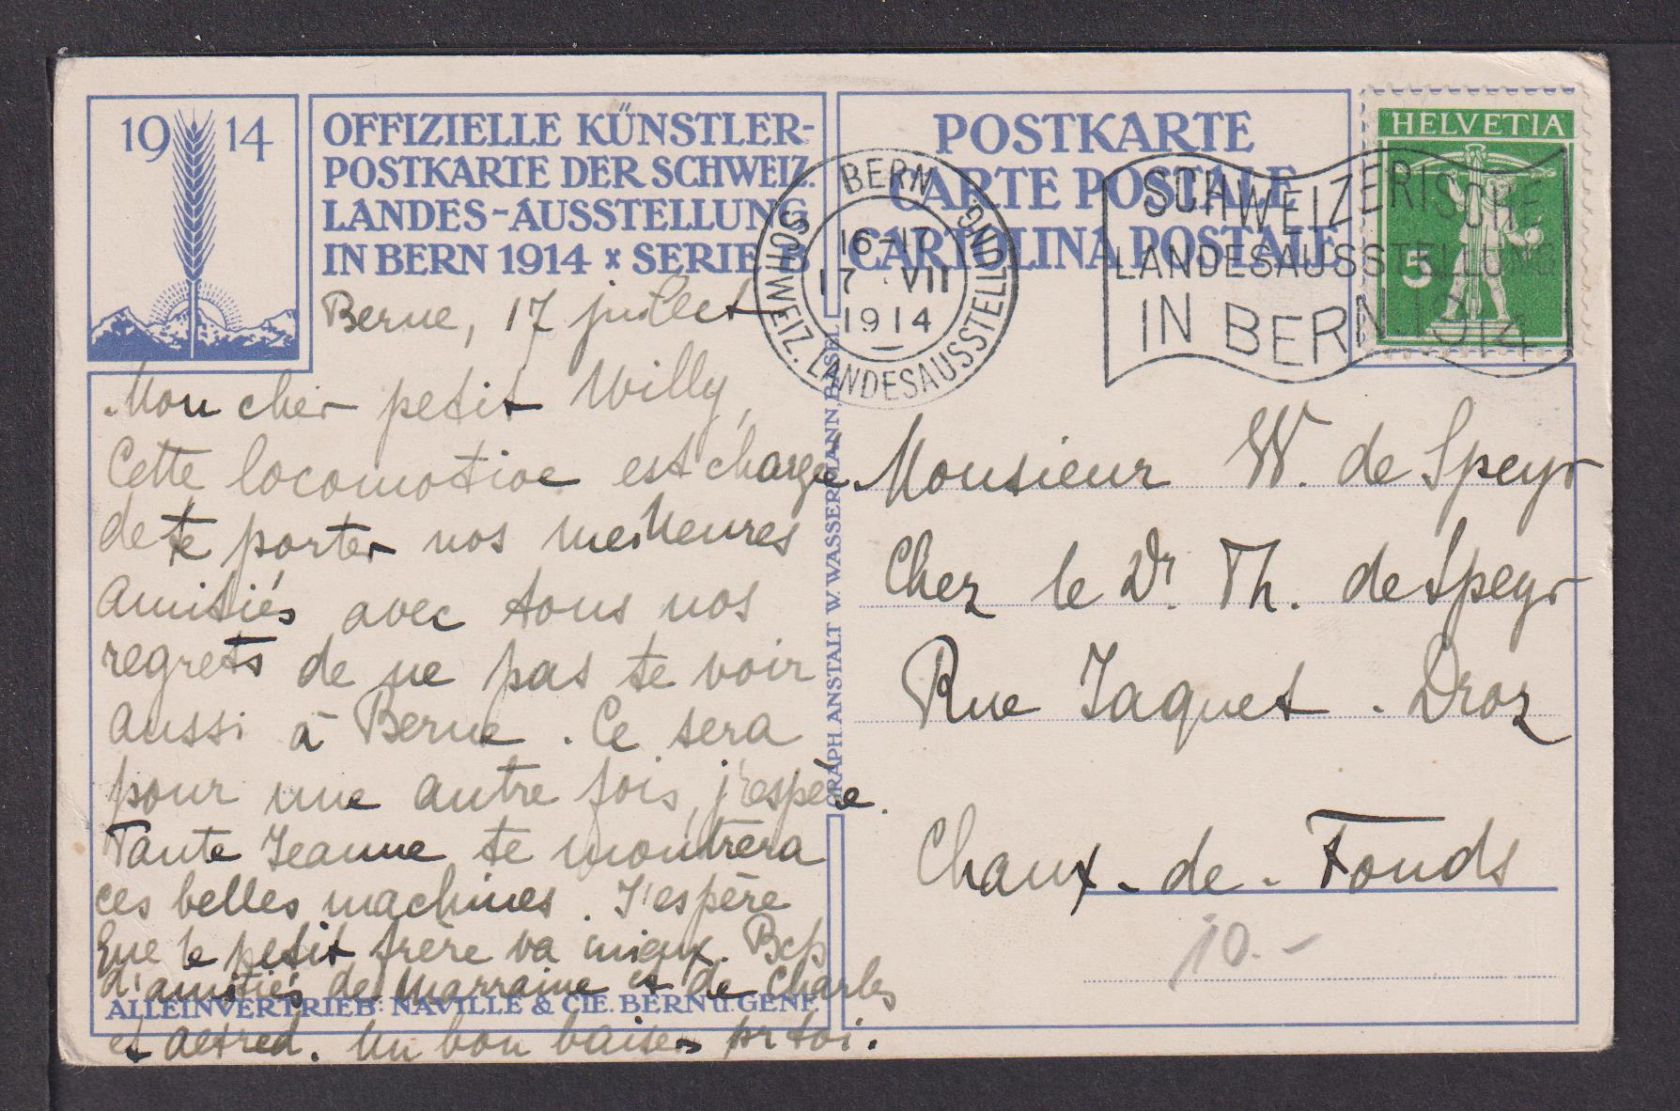 19 14
OFFIZIELLE KÜNSTLER-
POSTKARTE DER SCHWEIZ.
LANDES-AUSSTELLUNG
IN BERN 1914 x SERIE B
POSTKARTE
CARTE POSTALE
CARTOLINA POSTALE
BERN
SCHWEIZ. LANDESAUSSTELLUNG.
16-17
17. VII
1914
SCHWEIZERISCHE
LANDESAUSSTELLUNG
IN BERN. 1914
HELVETIA
5
Berne, 17 juillet
Mon cher petit Willy,
Cette locomotive est chargée
de te porter nos meilleures
amitiés avec tous nos
regrets de ne pas te voir
aussi à Berne. Ce sera
pour une autre fois, j'espère.
Tante Jeanne te montrera
ces belles machines. J'espère
que le petit frère va mieux. Bcp
d'amitiés de Marraine et de Charles
et Alfred. Un bon baiser pr toi.
ALLEINVERTRIEB: NAVILLE & CIE. BERN U. GENF.
GRAPH. ANSTALT W. WASSERMANN, BASEL
Monsieur W. de Speyr
Chez le Dr. Th. de Speyr
Rue Jaquet-Droz
Chaux-de-Fonds
10.-